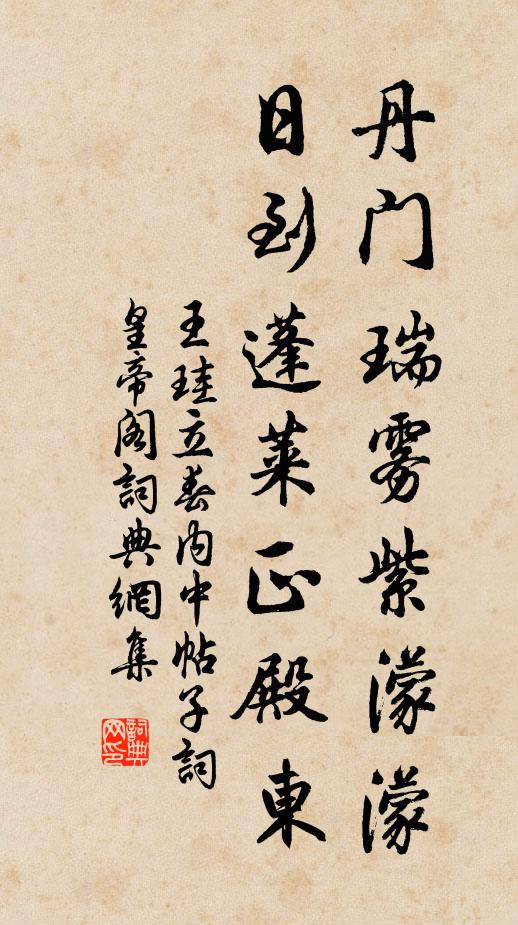 丹门瑞雾紫濛濛
日到蓬莱正殿東
王珪立春内中帖子詞
皇帝阁詞典網集
詞典网印